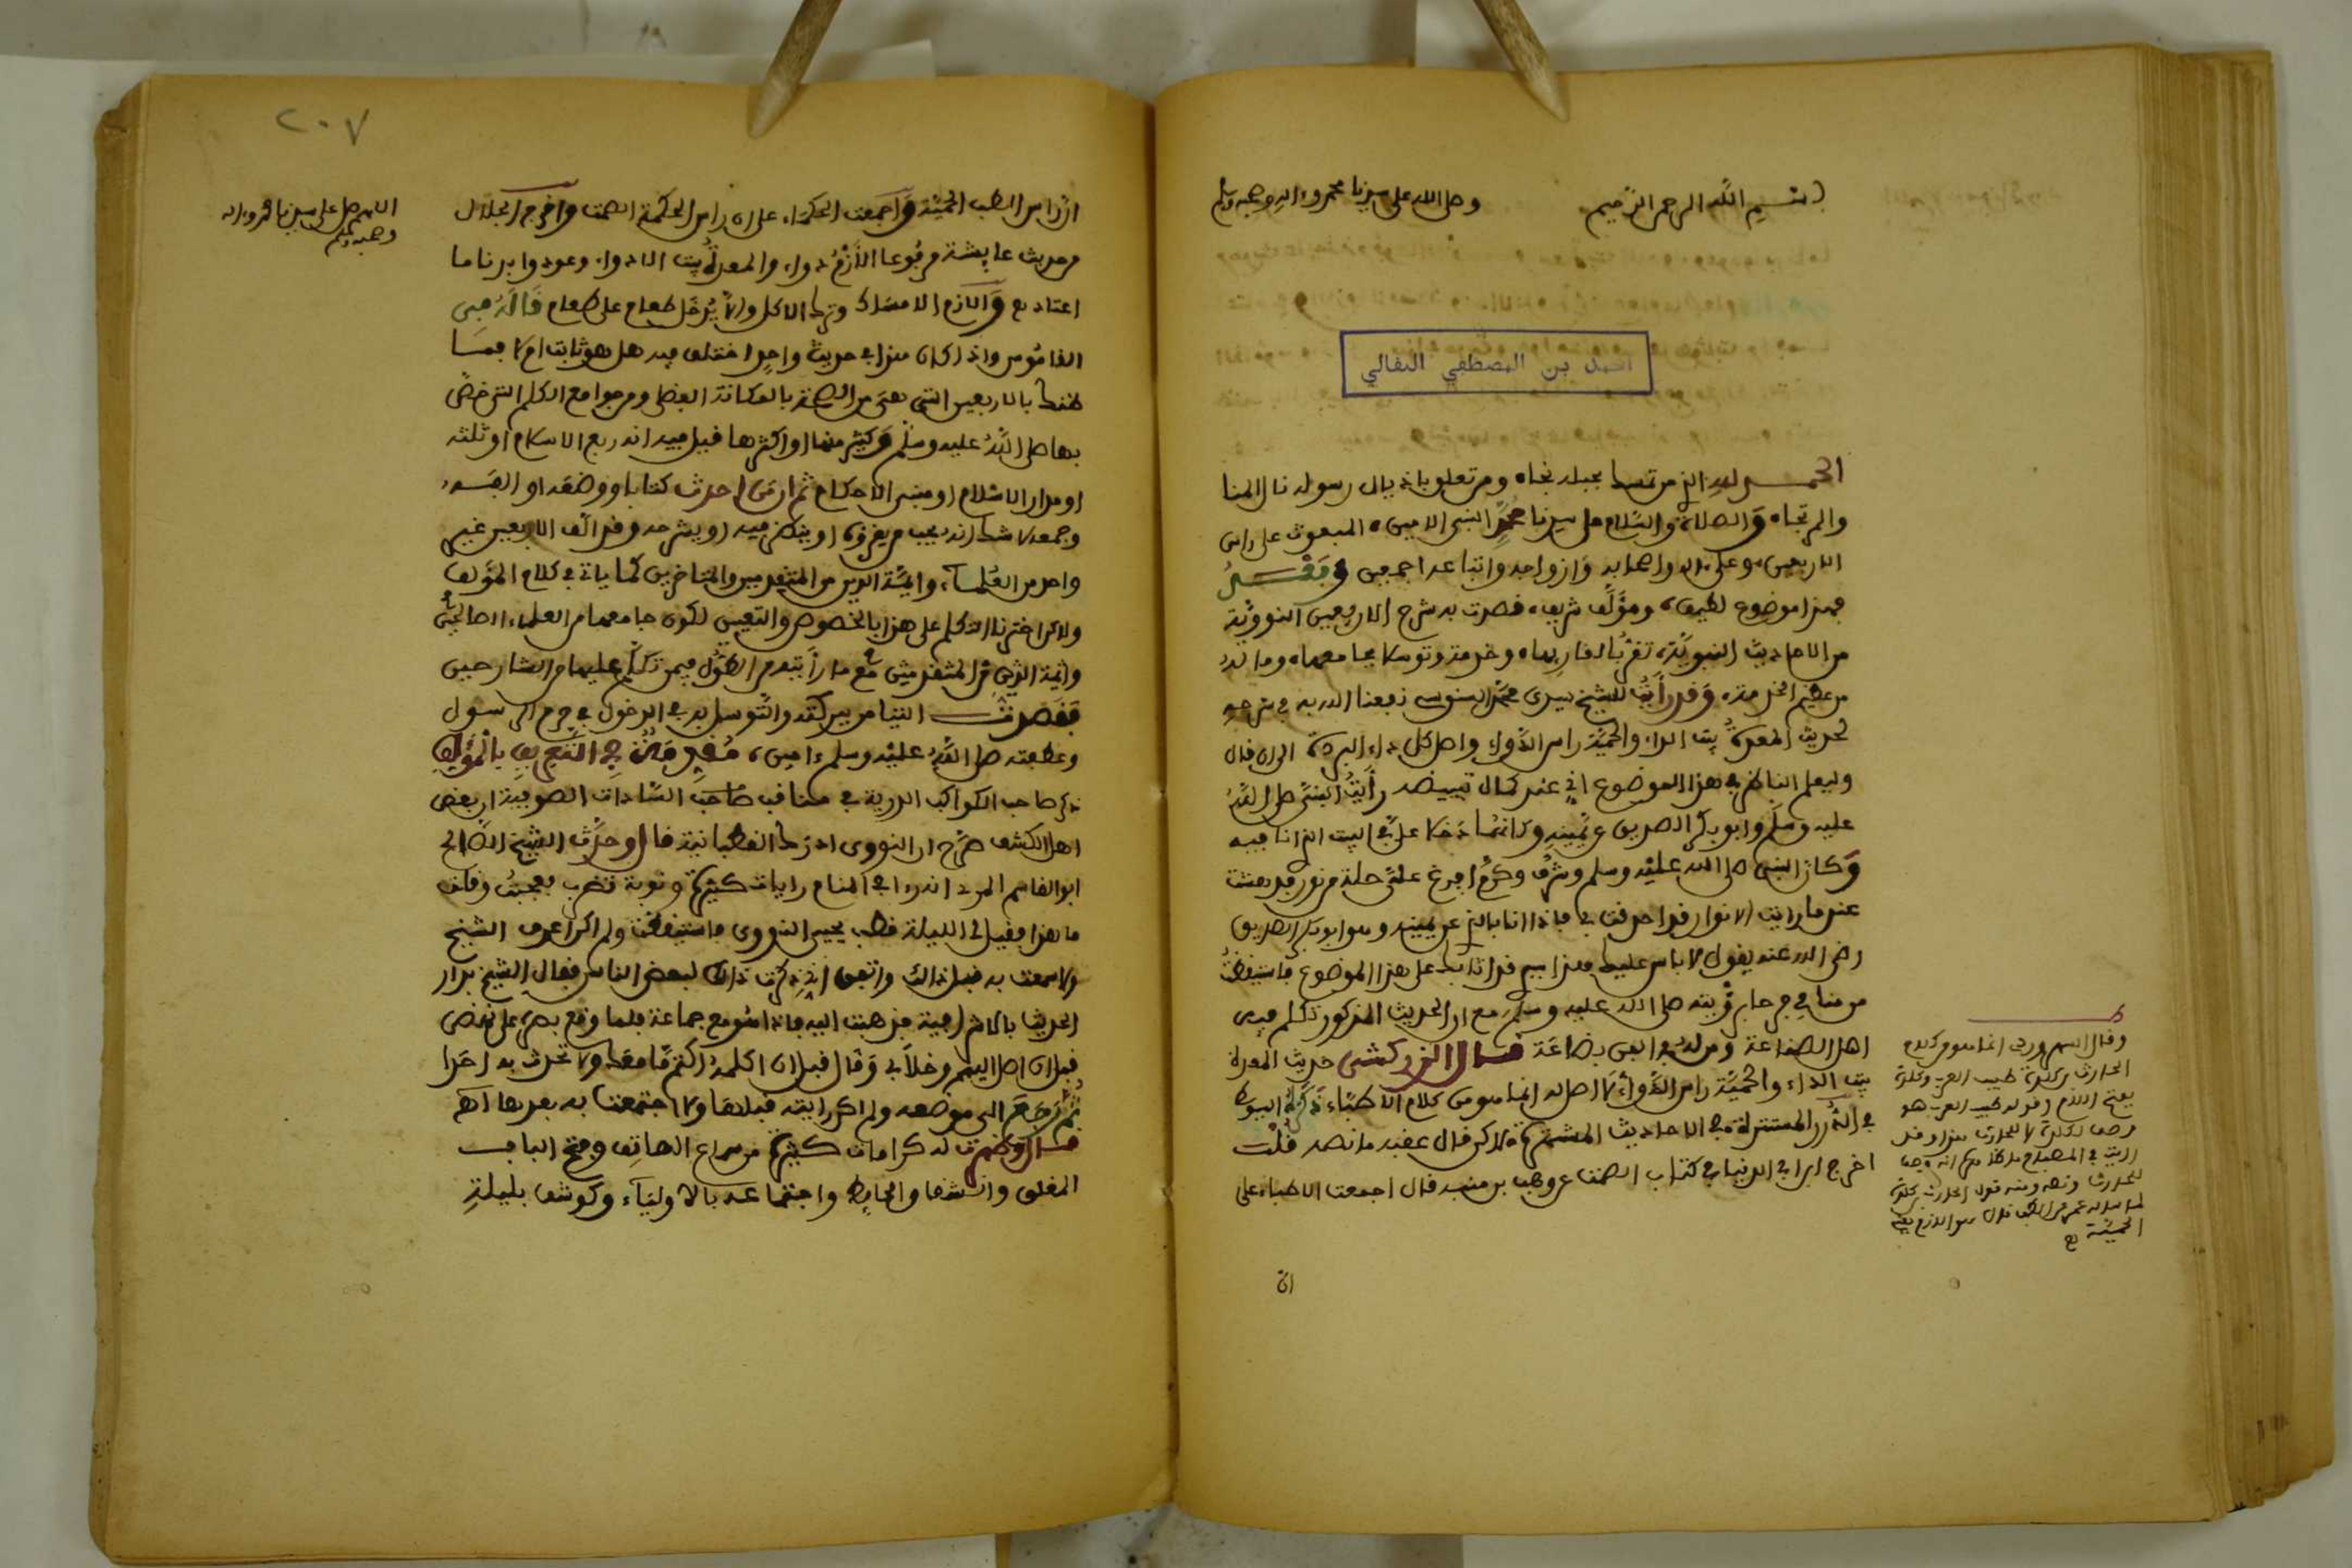 بسم الله الرحمن الرحيم وصلى الله على سيدنا محمد وءاله وصحبه وسلم
احمد بن المصطفي النفالي
الحمد لله الذي من تمسك بحبله نجاه ومن تعلق باذيال رسوله نال المنا
والمرتجاه والصلاة والسلام على سيدنا محمد النبي الامين المبعوث على راس
الاربعين وعلى ءاله واصحابه وازواجه واتباعه اجمعين وبعد
فهذا موضوع لطيف ومؤلف شريف قصدت به شرح الاربعين النووية
من الاحاديث النبوية تقربا لقاريها وخدمة وتوسلا بجامعها وما له
من عظيم الخدمة وقد رأيت للشيخ سيدي محمد السنوسي نفعنا الله به في شرحه
لحديث المعدة بيت الداء والحمية راس الدواء واصل كل داء البردة الى ان قال
وليعلم الناظر في هذا الموضوع اني عند كمال تبييضه رأيت النبي صلى الله
عليه وسلم وابو بكر الصديق عن يمينه وكانهما دخلا علي في البيت الذي انا فيه
وكان النبي صلى الله عليه وسلم وشرف وكرم افرغ علي حلة من نور فدهشت
عند ما رايت الانوار قد احدقت بي فاذا انا بالذي عن يمينه وهو ابو بكر الصديق
رضي الله عنه يقول لا باس عليك هذا نبيي قد اثابك على هذا الموضوع فاستيقظت
من منامي فرحا برؤيته صلى الله عليه وسلم مع ان الحديث المذكور تكلم فيه
اهل الصناعة ومن لديه في الفن بضاعة قال الزركشي حديث المعدة
بيت الداء والحمية راس الدواء لا اصل له انما هو من كلام الاطباء ذكره السيوطي
في الدرر المنتثرة في الاحاديث المشتهرة لاكن قال عقبه ما نصه قلت
اخرج ابن ابي الدنيا في كتاب الصمت عن وهب بن منبه قال اجمعت الاطباء على
ان
وقال السهروردي انما هو من كلام
الحارث بن كلدة طبيب العرب وكلدة
بفتح اللام وقوله طبيب العرب هو
وصف لكلدة لا للحارث هذا وقد
رايت في المصباح
للحارث ونصه ومنه قول الحارث بن كلدة
لما ساله عمر عن الطب قال هو الازم يعني
الحمية اهـ
٢٠٧
اللهم صل على سيدنا محمد وءاله
وصحبه وسلم
ان راس الطب الحمية واجمعت الحكماء على ان راس الحكمة الصمت واخرج الخلال
من حديث عايشة مرفوعا الازم دواء والمعدة بيت الادواء وعودوا بدنا ما
اعتاد اهـ والازم الامساك وترك الاكل وان لا يدخل طعام على طعام قاله في
القاموس واذا كان هذا في حديث واحد اختلف فيه هل هو ثابت ام لا فما
ظنك بالاربعين التي هي من الصحة بالمكانة العظمى ومن جوامع الكلم التي خص
بها صلى الله عليه وسلم وكثير منها او اكثرها قيل فيه انه ربع الاسلام او ثلثه
او مدار الاسلام او مبنى الاحكام ثم ان من احدث كتابا ووضعه او الفه
وجمعه لا شك انه يحب من يقرؤه او ينظر فيه او يشرحه وقد الف الاربعين غير
واحد من العلماء وايمة الدين من المتقدمين والمتاخرين كما ياتي في كلام المؤلف
ولاكن اخترنا التكلم على هذا بالخصوص والتعيين لكون جامعها من العلماء الصالحين
وايمة الدين المتقدمين مع ما رأيته من الطول فيمن تكلم عليها من الشارحين
فقصدت التيامن ببركته والتوسل به في الدخول في حرم الرسول
وعطفته صلى الله عليه وسلم ءامين مقدمة في التعريف بالمؤلف
ذكر صاحب الكواكب الدرية في مناقب السادات الصوفية ان بعض
اهل الكشف صرح ان النووي ادرك القطبانية قال وحدث الشيخ الصالح
ابو القاسم المزي انه رءا في المنام رايات كثيرة ونوبة تضرب فعجبت وقلت
ما هذا فقيل لي الليلة قطب يحيى النووي فاستيقظت ولم اكن اعرف الشيخ
ولا سمعت به قبل ذالك واتفق اني ذكرت ذالك لبعض الناس فقال الشيخ بدار
الحديث بالاشرفية فذهبت اليه فاذا هو مع جماعة فلما وقع بصره علي نهض
قبل ان اصل اليهم وخلا بي وقال قبل ان اكلمه اكتم ما معك ولا تحدث به احدا
ثم رجع الى موضعه ولم اكن رايته قبلها ولا اجتمعت به بعدها اهـ
قال وظهرت له كرامات كثيرة من سماع الهاتف وفتح الباب
المغلق وانشقاق الحايط واجتماعه بالاولياء وكوشف بليلة